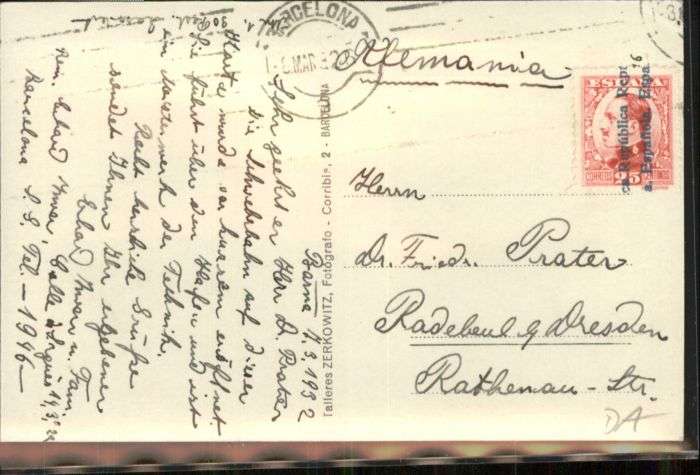 BARCELONA
Alemania
ESPAÑA
CORREOS
25
CENTIMOS
República
Española
Talleres ZERKOWITZ, Fotógrafo - Corribia, 2 - BARCELONA
Herrn
Dr. Friedr. Prater
Radebeul b/ Dresden
Rathenau-Str.
DA
Barna 7.3.1932
Sehr geehrter Herr Dr. Prater
die Schwebebahn auf dieser
Karte wurde vor kurzem eröffnet
Sie führt über den Hafen und ist
ein Meisterwerk der Technik.
Recht herzliche Grüße
sendet Ihnen Ihr ergebener
Barcelona S. G. Tel. - 1946